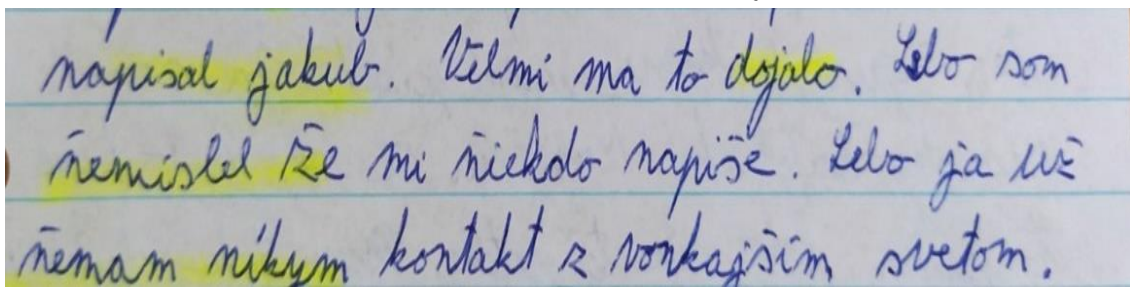 napisal jakub. Velmi ma to dojalo. Lebo som
ňemislel že mi ňiekdo napiše. Lebo ja už
ňemam nikym kontakt z vonkajšim svetom.